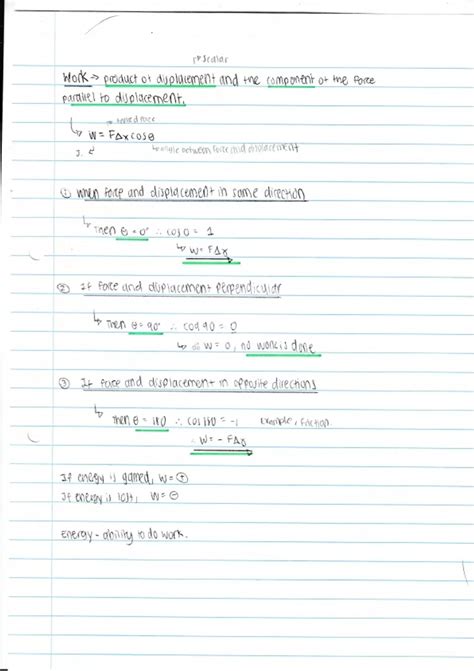 Scalar
Work → product of displacement and the component of the force
parallel to displacement.
↳ W = FΔxcosθ
↳ angle between force and displacement
① When force and displacement in same direction
↳ Then θ = 0° ∴ cos 0 = 1
↳ W = FΔx
② If force and displacement perpendicular
↳ Then θ = 90° ∴ cos 90 = 0
↳ W = 0, no work is done
③ If force and displacement in opposite directions
↳ Then θ = 180 ∴ cos 180 = -1 Example, Friction
W = - FΔx
If energy is gained, W = ⊕
If energy is lost, W = ⊖
Energy - ability to do work.